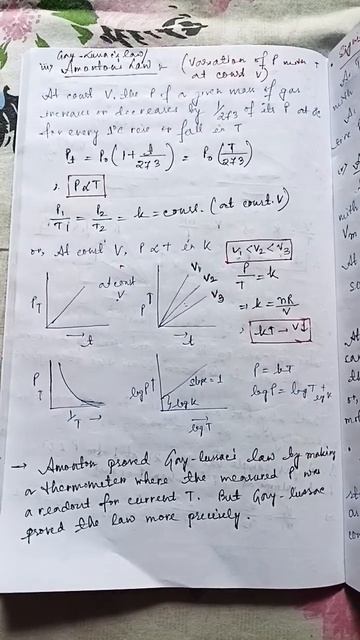 Gay-Lussac's law/
iii) Amonton's Law :- (Variation of P with T
at const V)
At const V, the P of a given mass of gas
increases or decreases by 1/273 of its P at 0c
for every 1°c rise or fall in T
Pt = P0 (1 + t/273) = P0 (T/273)
∴ P ∝ T
P1/T1 = P2/T2 = k = const. (at const. V)
or, At const V, P ∝ T in k
V1 < V2 < V3
P/T = k
⇒ k = nR/V
∴ k↑ → V↓
P↑ at const V → t
P↑ V1 V2 V3 → t
P↑ 1/T →
logP↑ slope = 1 logk logT
P = kT
logP = logT + logk
→ Amonton proved Gay-lussac's law by making
a thermometer where the measured P was
a readout for current T. But Gay-lussac
proved the law more precisely.